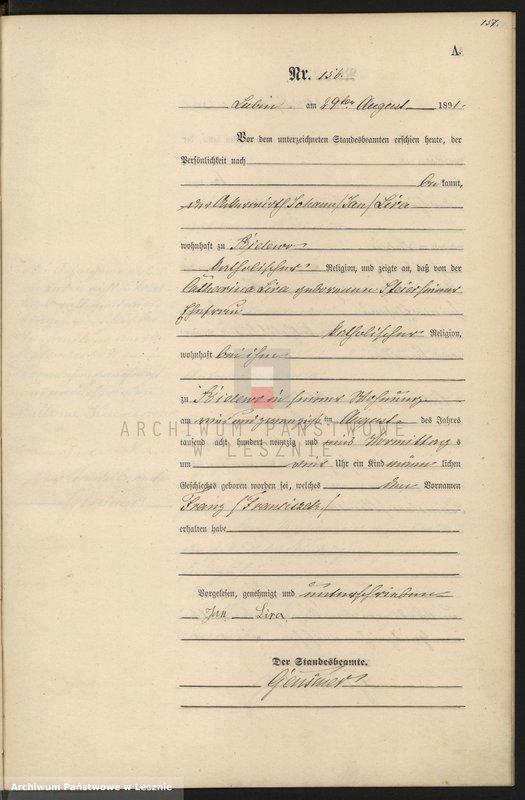 157.
A.
Nr. 156.
Lubin am 29ten August 1891.
Vor dem unterzeichneten Standesbeamten erschien heute, der
Persönlichkeit nach
bekannt,
der Ackerwirth Johann /Jan/ Lira
wohnhaft zu
katholischer Religion, und zeigte an, daß von der
Catharina Lira geborenen seiner
Ehefrau
katholischer Religion,
wohnhaft bei ihm
zu in seiner Wohnung
am ein und zwanzigsten August des Jahres
tausend acht hundert neunzig und eins Vormittags
um Uhr ein Kind männlichen
Geschlechts geboren worden sei, welches den Vornamen
Franz /Franciszek/
erhalten habe
Vorgelesen, genehmigt und unterschrieben
Jan Lira
Der Standesbeamte.
ARCHIWUM PAŃSTWOWE
W LESZNIE
Archiwum Państwowe w Lesznie